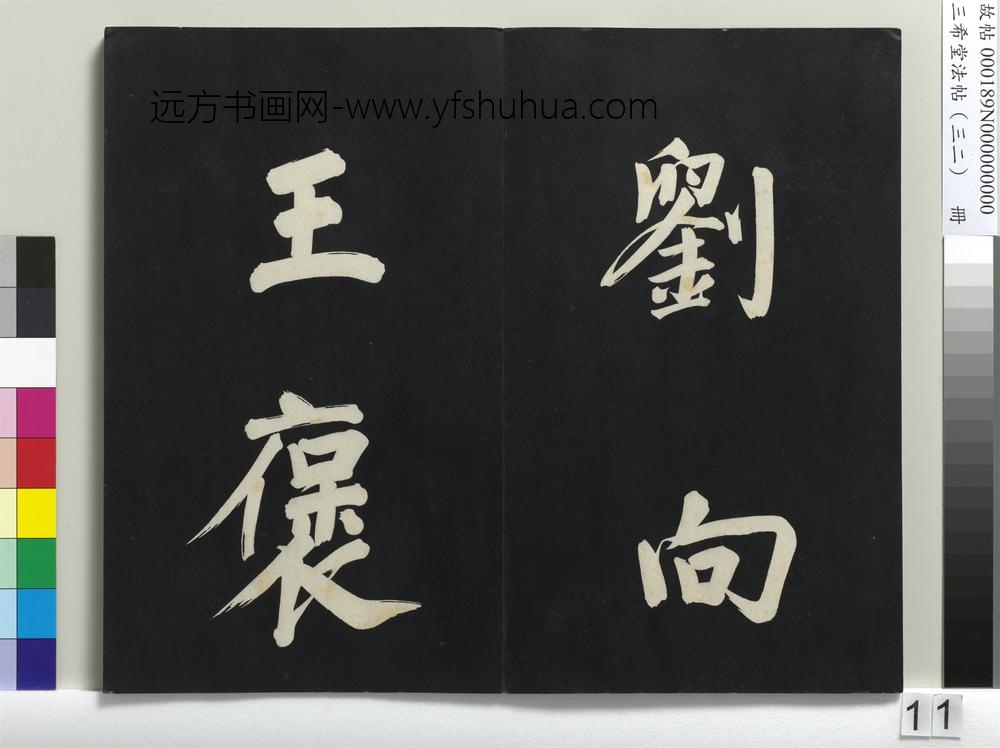 劉向
王褒
远方书画网-www.yfshuhua.com
故帖 000189N000000000
三希堂法帖(三二) 冊
11